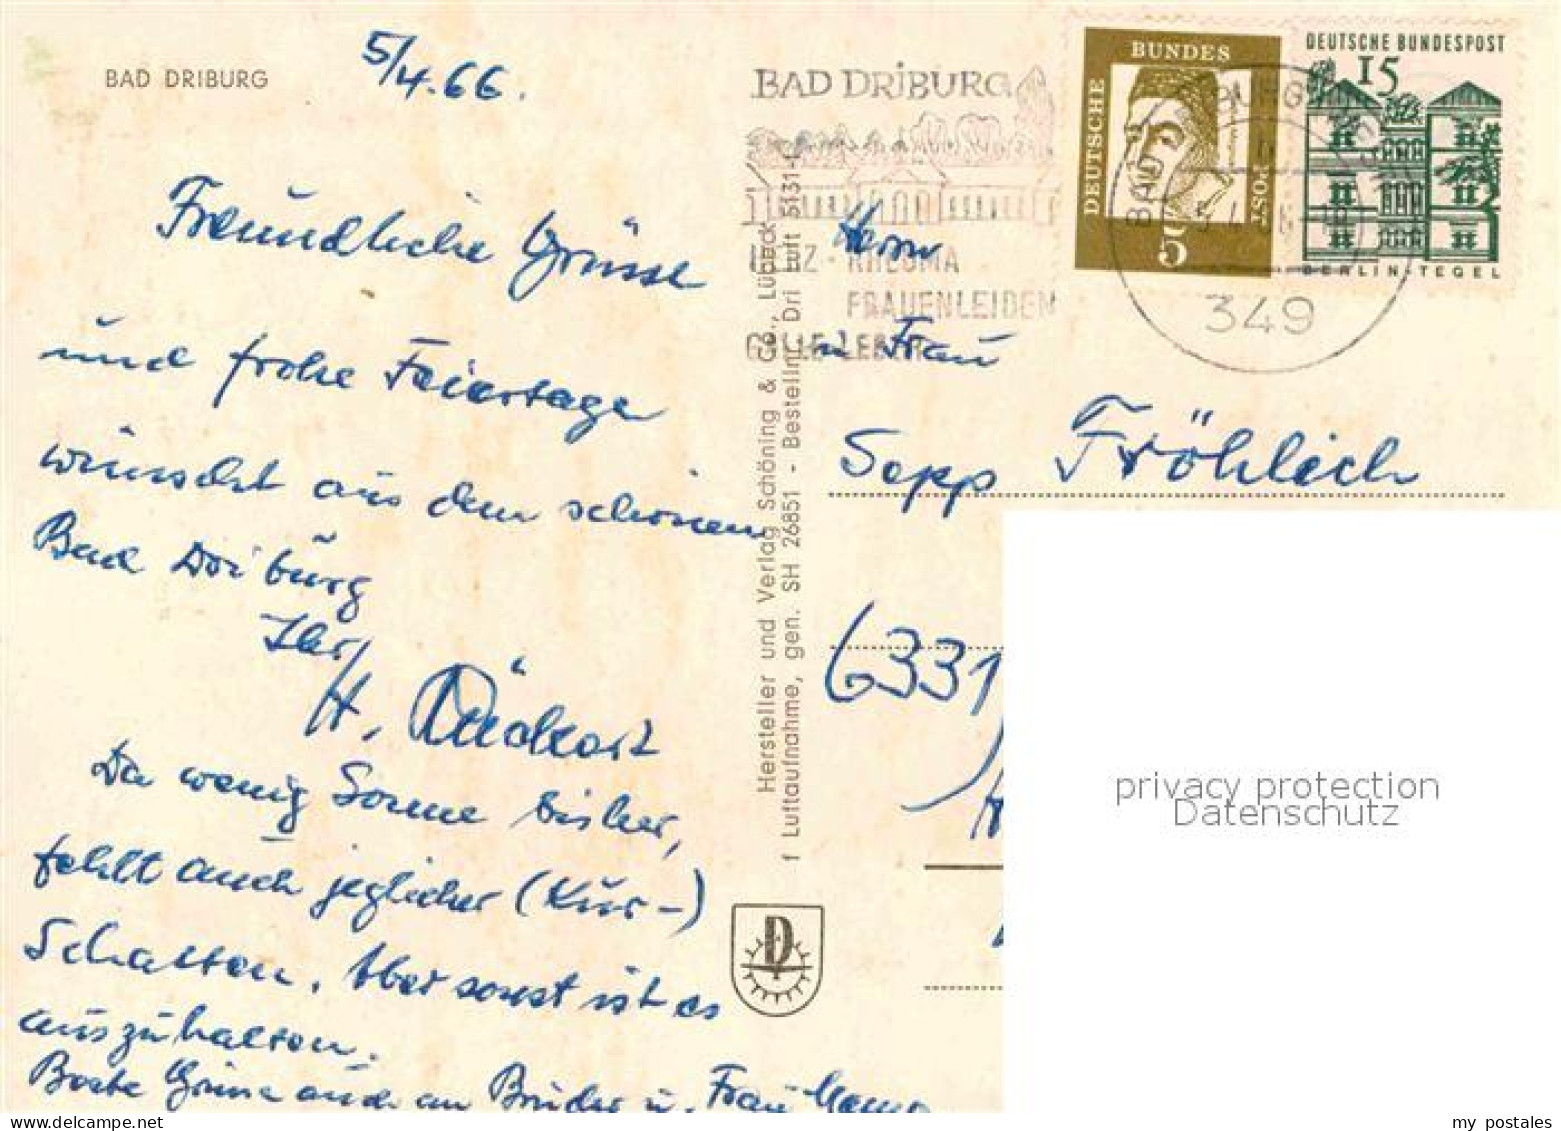 BAD DRIBURG
5/4.66.
Freundliche Grüsse
und frohe Feiertage
wünscht aus dem schönen
Bad Driburg
Ihr
H.
Da wenig Sonne bisher,
fehlt auch jeglicher (Kur-)
Schatten. Aber sonst ist es
auszuhalten.
Beste Grüsse auch an Bruder u. Frau
Hersteller und Verlag Schöning & Co., Lübeck
f Luftaufnahme, gen. SH 26851 - Bestellnr. Dri Luft 5131-L
BAD DRIBURG
HERZ - RHEUMA
FRAUENLEIDEN
GALLE-LEBER
DEUTSCHE BUNDES POST
5
DEUTSCHE BUNDESPOST
15
BERLIN-TEGEL
BAD
349
Herrn
u Frau
Sepp Fröhlich
6331
D
privacy protection
Datenschutz
my postales